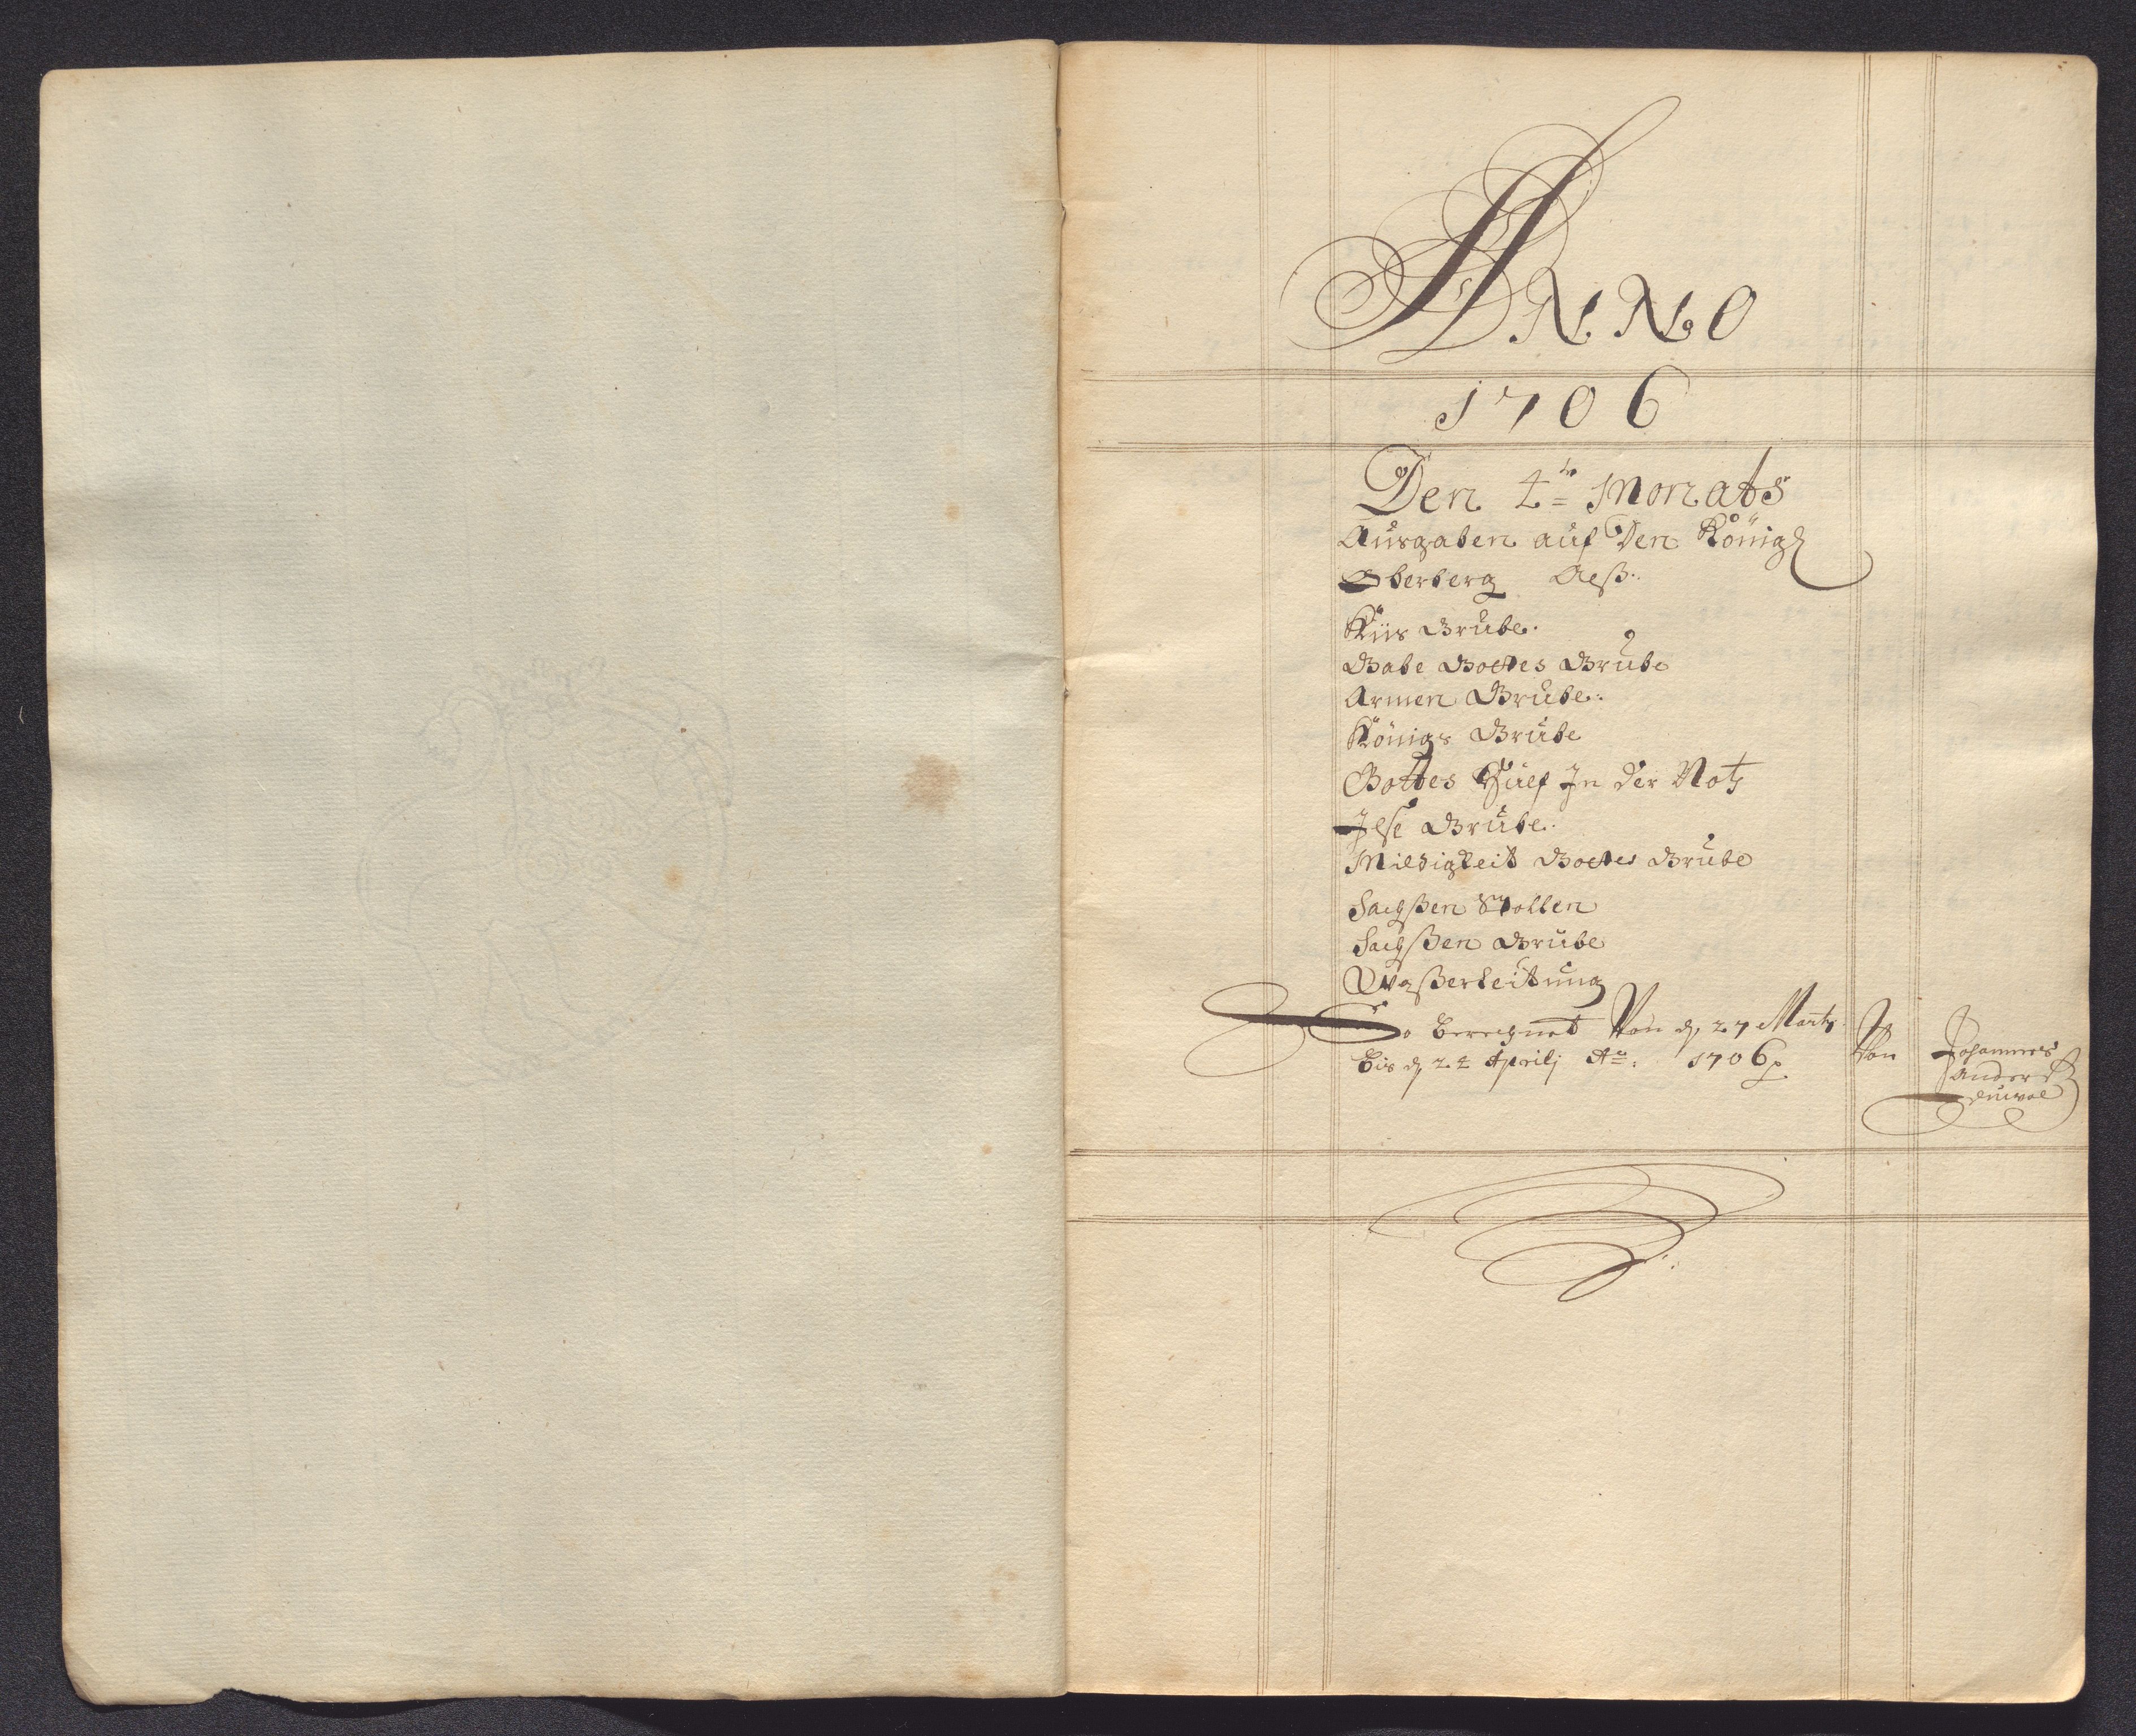 ANNO
1706
Den 4te Monats
Ausgaben auf Den Königl
Oberberg
Gabe Gottes Grube
Armen Grube.
Königs Grube
Gottes Hülf In der Noth
Jlse Grube.
Mildigkeit Gottes Grube
Sachßen Stollen
Sachßen Grube
Waßerleitung
So berechnet Von d. 27 Marty
Bis d. 24 Aprilj Ao: 1706
Von Johannes
Anders